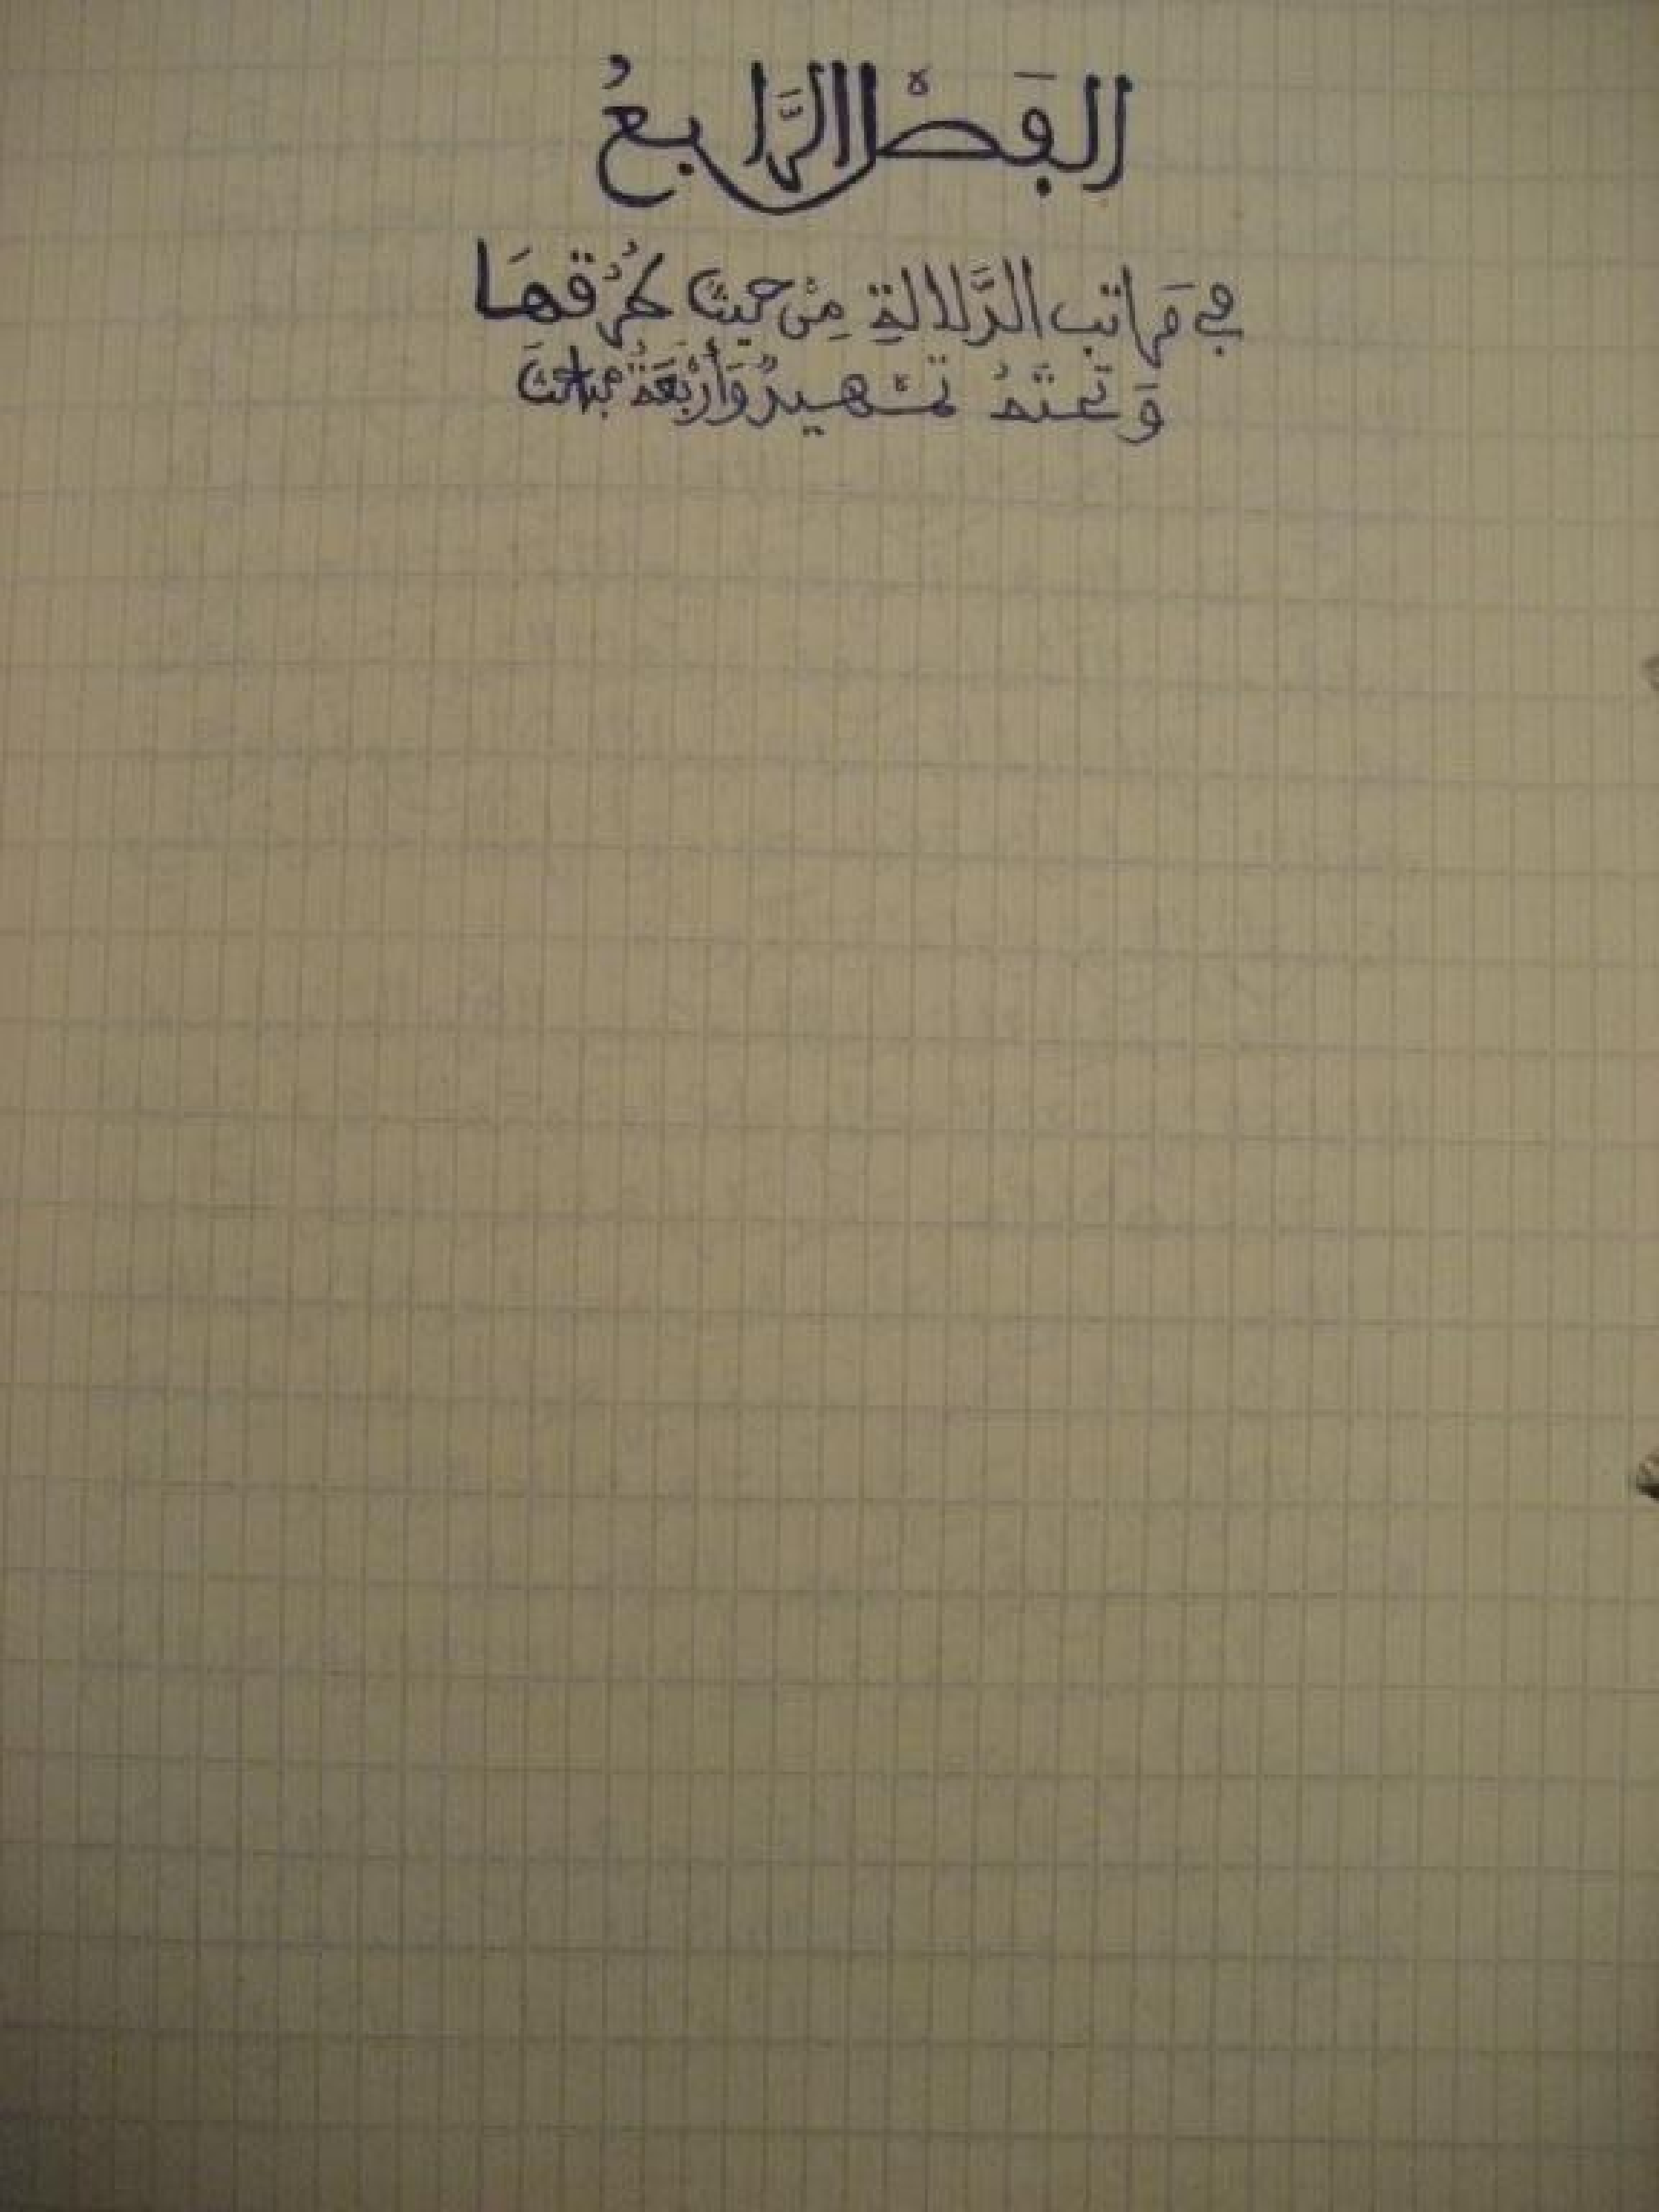 الفَصْلُ الرَّابِعُ
فِي مَراتب الدَّلالةِ مِنْ حيثُ طُرُقُهَا
وَتحتَهُ تَمْهيدٌ وَأَرْبَعَةُ مَبَاحثَ